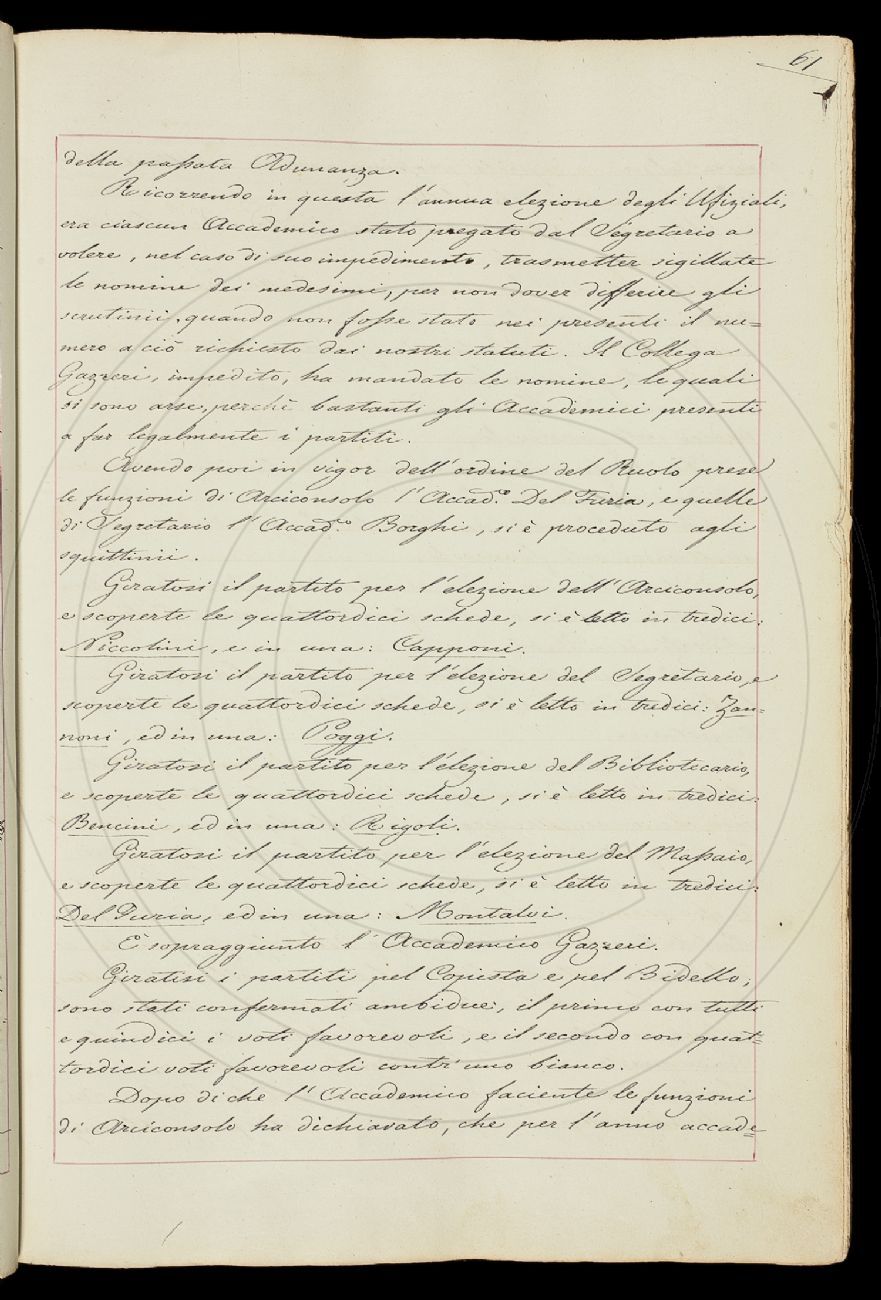 61
della passata Adunanza.
Ricorrendo in questa l'annua elezione degli Ufiziali,
era ciascun Accademico stato pregato dal Segretario a
volere, nel caso di suo impedimento, trasmetter sigillate
le nomine dei medesimi, per non dover differire gli
scrutinii, quando non fosse stato nei presenti il nu=
mero a ciò richiesto dai nostri statuti. Il Collega
Gazzeri, impedito, ha mandato le nomine, le quali
si sono arse, perchè bastanti gli Accademici presenti
a far legalmente i partiti.
Avendo poi in vigor dell'ordine del Ruolo prese
le funzioni di Arciconsolo l'Accad.co Del Furia, e quelle
di Segretario l'Accad.co Borghi, si è proceduto agli
squittinii.
Giratosi il partito per l'elezione dell'Arciconsolo,
e scoperte le quattordici schede, si è letto in tredici:
Niccolini, e in una: Capponi.
Giratosi il partito per l'elezione del Segretario, e
scoperte le quattordici schede, si è letto in tredici: Zan=
noni, ed in una: Poggi.
Giratosi il partito per l'elezione del Bibliotecario,
e scoperte le quattordici schede, si è letto in tredici:
Bencini, ed in una: Rigoli.
Giratosi il partito per l'elezione del Massaio,
e scoperte le quattordici schede, si è letto in tredici:
Del Furia, ed in una: Montalvi.
È sopraggiunto l'Accademico Gazzeri.
Giratisi i partiti pel Copista e pel Bidello;
sono stati confermati ambidue, il primo con tutti
e quindici i voti favorevoli, e il secondo con quat=
tordici voti favorevoli contr'uno bianco.
Dopo di che l'Accademico faciente le funzioni
di Arciconsolo ha dichiarato, che per l'anno accade=